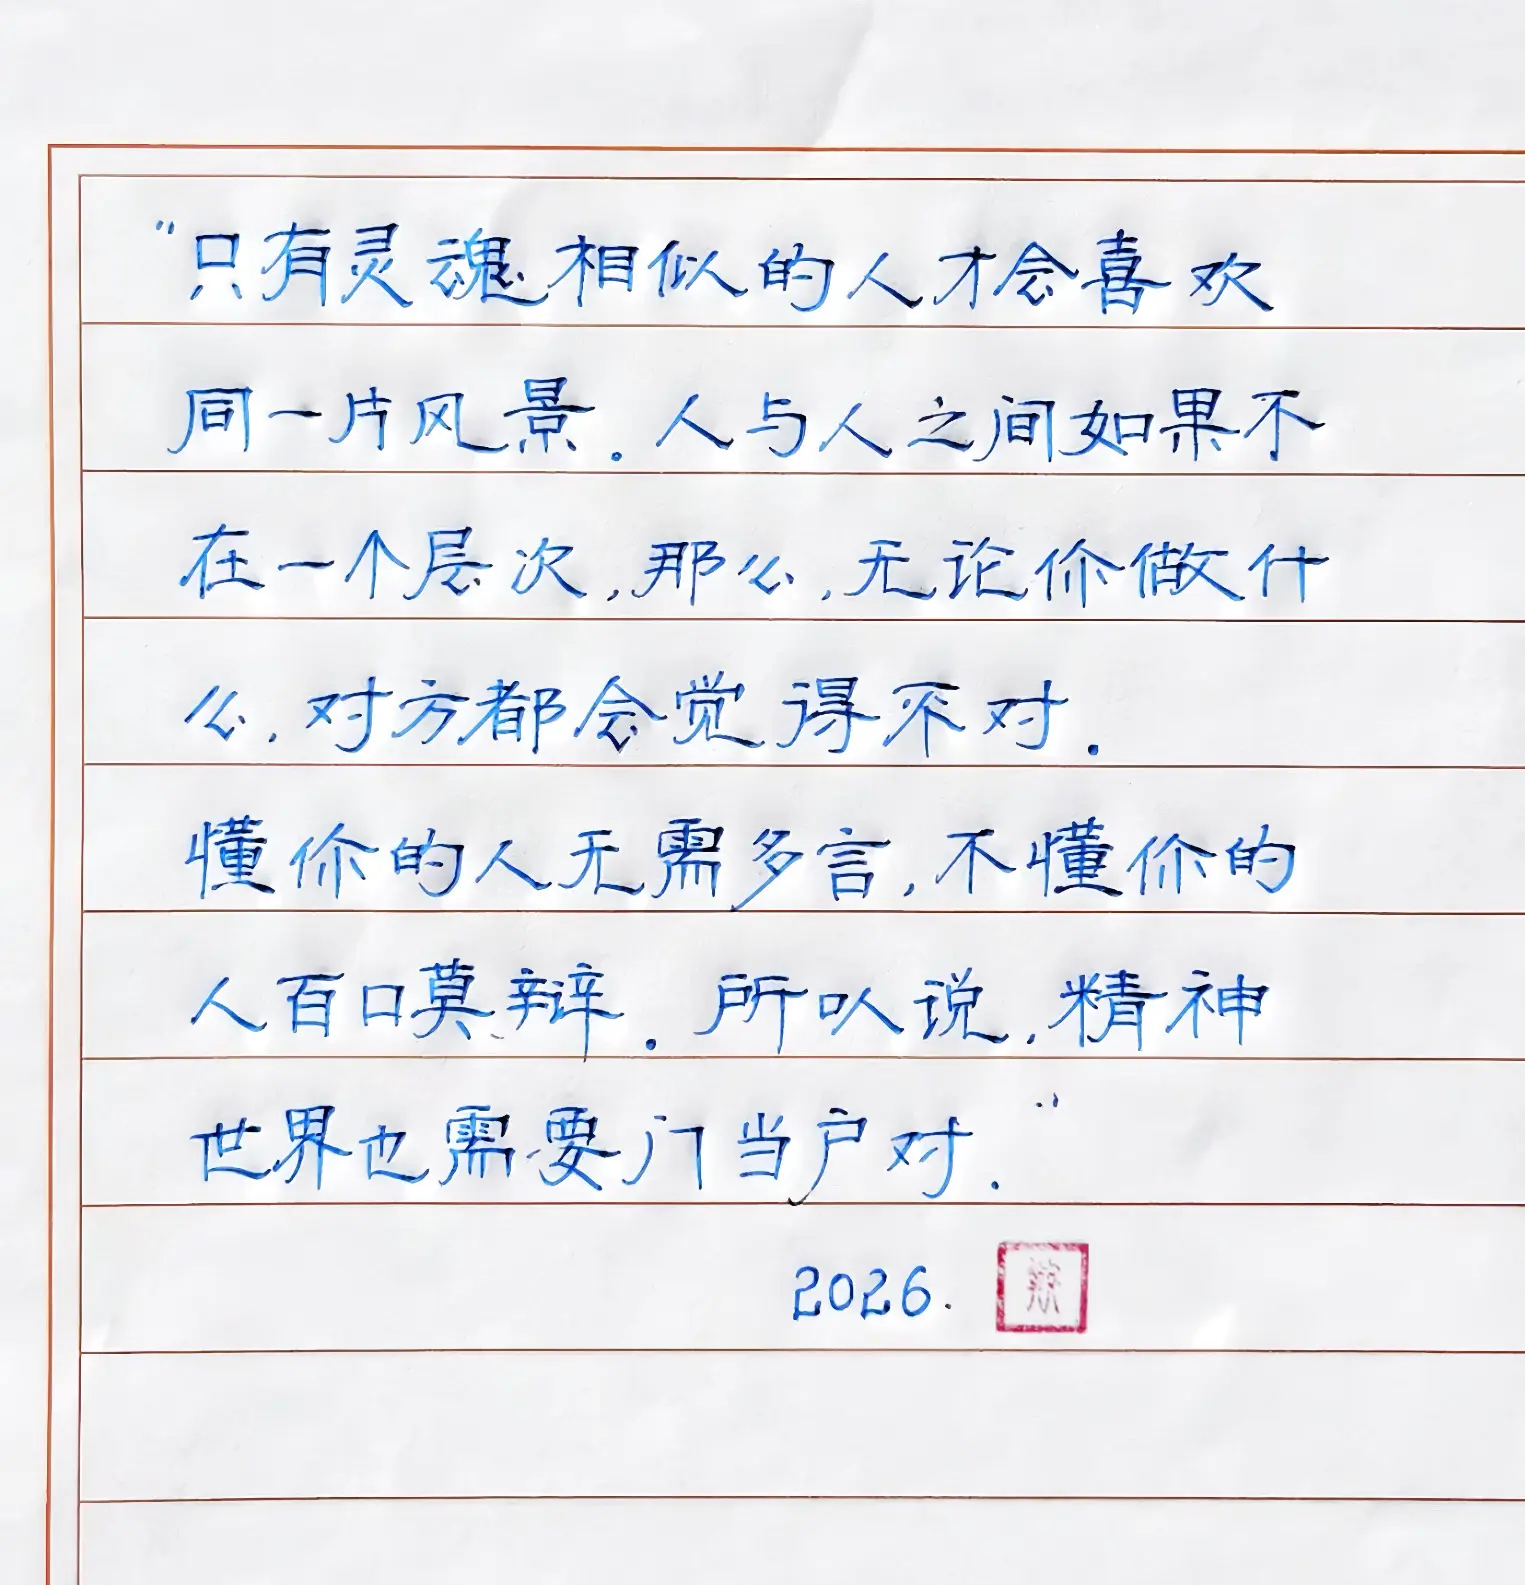 “只有灵魂相似的人才会喜欢
同一片风景.人与人之间如果不
在一个层次,那么,无论你做什
么,对方都会觉得不对.
懂你的人无需多言,不懂你的
人百口莫辩.所以说,精神
世界也需要门当户对.”
2026.